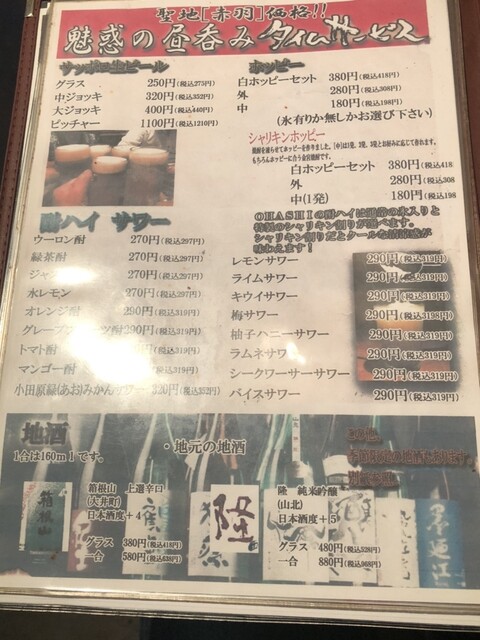 聖地[赤羽]価格!!
魅惑の昼呑みタイムサービス
サッポロ生ビール
グラス 250円(税込275円)
中ジョッキ 320円(税込352円)
大ジョッキ 400円(税込440円)
ピッチャー 1100円(税込1210円)
ホッピー
白ホッピーセット 380円(税込418円)
外 280円(税込308円)
中 180円(税込198円)
(氷有りか無しかお選び下さい)
シャリキンホッピー
もちろんホッピーに合う金宮焼酎です。
白ホッピーセット 380円(税込418
外 280円(税込308
中(1発) 180円(税込198
酎ハイ サワー
ウーロン酎 270円(税込297円)
緑茶酎 270円(税込297円)
270円(税込297円)
氷レモン 270円(税込297円)
オレンジ酎 290円(税込319円)
290円(税込319円)
トマト酎 290円(税込319円)
マンゴー酎 290円(税込319円)
小田原緑(あお)みかんサワー 320円(税込352円)
OHASHIの酎ハイは通常の氷入りと
特製のシャリキン割りが選べます。
シャリキン割りだとクールな清涼感が
味わえます!
レモンサワー 290円(税込319円)
ライムサワー 290円(税込319円)
キウイサワー 290円(税込319円)
梅サワー 290円(税込319円)
柚子ハニーサワー 290円(税込319円)
ラムネサワー 290円(税込319円)
シークワーサーサワー 290円(税込319円)
バイスサワー 290円(税込319円)
地酒
1合は160mlです。
・地元の地酒
その他、
季節限定の地酒有ります。
箱根山 上選辛口
(大井町)
日本酒度+4
グラス 380円(税込418円)
一合 580円(税込638円)
隆 純米吟醸
(山北)
日本酒度+5
グラス 480円(税込528円)
一合 880円(税込968円)
箱根山
隆
墨廼江